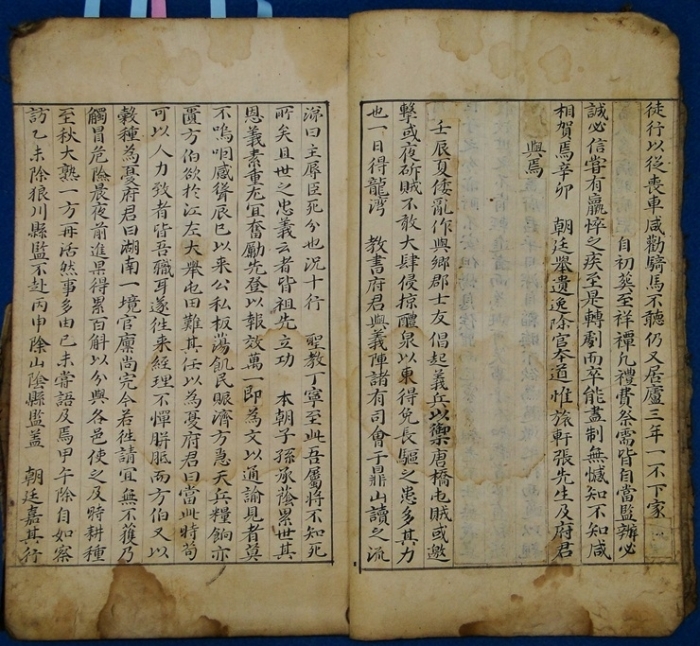 徒行以從喪車咸勸騎馬不聽仍又居廬三年一不下家
自初葬至祥禫凡禮費祭需皆自當監辦必
誠必信嘗有羸悴之疾至是轉劇而卒能盡制無憾知不知咸
相賀焉辛卯 朝廷舉遺逸除官本道惟旅軒張先生及府君
與焉
壬辰夏倭亂作與鄉郡士友倡起義兵以禦唐橋屯賊或邀
擊或夜斫賊不敢大肆侵掠醴泉以東得免長驅之患多其力
也一日得龍灣 教書府君與義陣諸有司會于鼎山讀之流
涕曰主辱臣死分也況十行 聖教丁寧至此吾屬將不知死
所矣且世之忠義云者皆祖先立功 本朝子孫承蔭累世其
恩義素重尤宜奮勵先登以報效萬一即為文以通諭見者莫
不嗚咽感聳辰巳以來公私板蕩飢民賑濟方急天兵糧餉亦
匱方伯欲於江左大舉屯田難其任以為憂府君曰當此時苟
可以人力致者皆吾職耳遂往來經理不憚胼胝而方伯又以
穀種為憂府君曰湖南一境官廩尚完今若往請宜無不獲乃
觸冒危險晨夜前進果得累百斛以分與各邑使之及時耕種
至秋大熟一方再活然事多由己未嘗語及焉甲午除自如察
訪乙未除狼川縣監不赴丙申除山陰縣監蓋 朝廷嘉其行